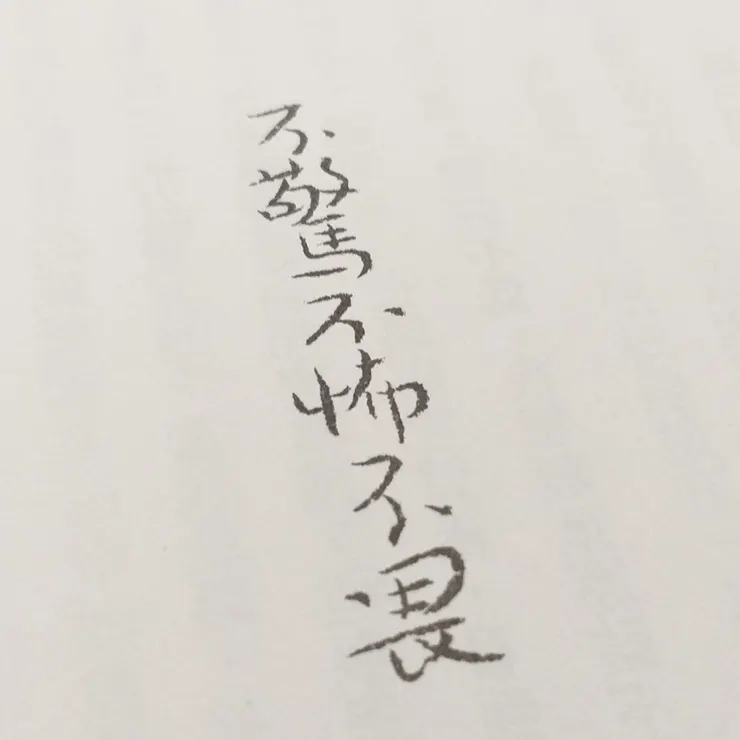 不驚不怖不畏